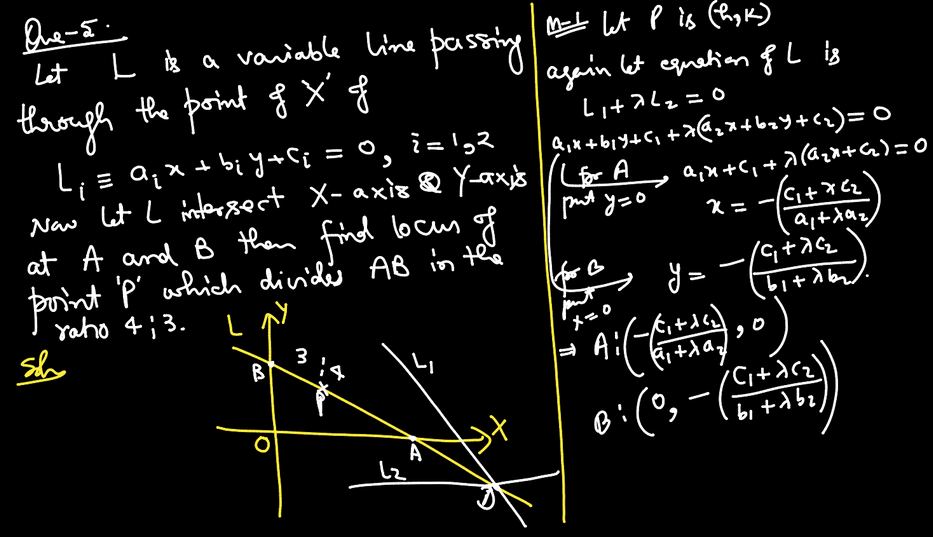 Que-5.
Let L is a variable line passing
through the point of X' of
L_i ≡ a_i x + b_i y + c_i = 0, i = 1, 2
Now let L intersect X-axis & Y-axis
at A and B then find locus of
point 'P' which divides AB in the
ratio 4:3.
Soln
L
Y
B
3 : 4
P
O
A
X
L1
L2
M-1 Let P is (h, k)
again let equation of L is
L₁ + λL₂ = 0
a₁x + b₁y + c₁ + λ(a₂x + b₂y + c₂) = 0
for A put y=0 → a₁x + c₁ + λ(a₂x + c₂) = 0
x = -((c₁ + λc₂)/(a₁ + λa₂))
for B put x=0 → y = -((c₁ + λc₂)/(b₁ + λb₂)).
⇒ A : (-(c₁ + λc₂)/(a₁ + λa₂), 0)
B : (0, -((c₁ + λc₂)/(b₁ + λb₂)))